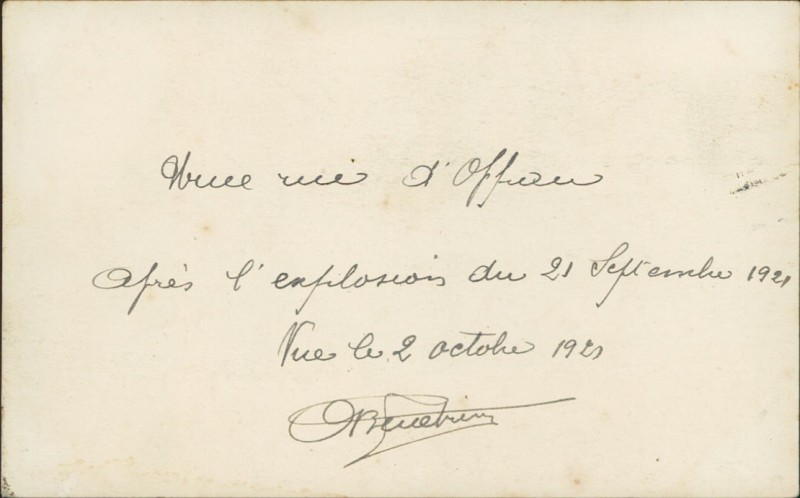 Une rue d'Oppau
Après l'explosion du 21 Septembre 1921
Vue le 2 octobre 1921